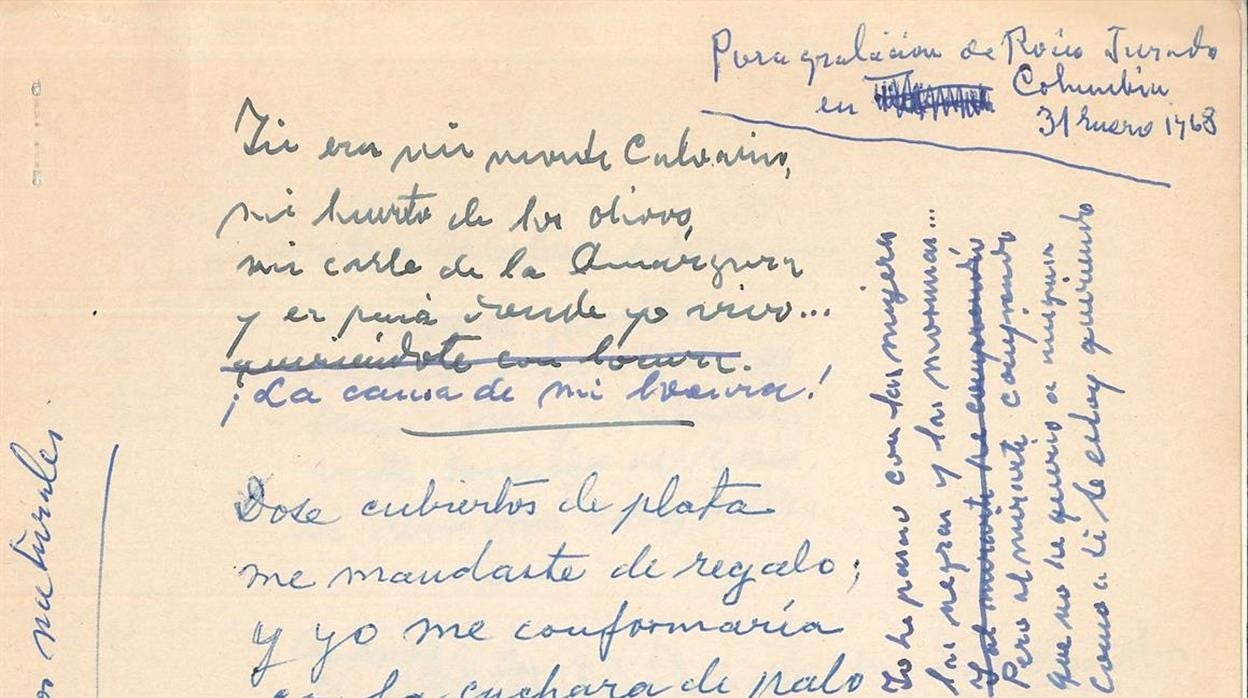 Para grabación de Rocío Jurado
en Columbia
31 Enero 1968
Tú era mi monte Calvario,
mi huerto de los olivos,
mi calle de la Amargura
y er puñá donde yo vivo...
queriéndote con locura.
¡La causa de mi locura!
Dose cubiertos de plata
me mandaste de regalo;
y yo me conformaría
con la cuchara de palo
Yo he pasao con las mujeres
las negras y las morenas...
y al mirarte he comprendío
Pero al mirarte comprendo
que no he querío a ninguna
como a ti te estoy queriendo
naturales